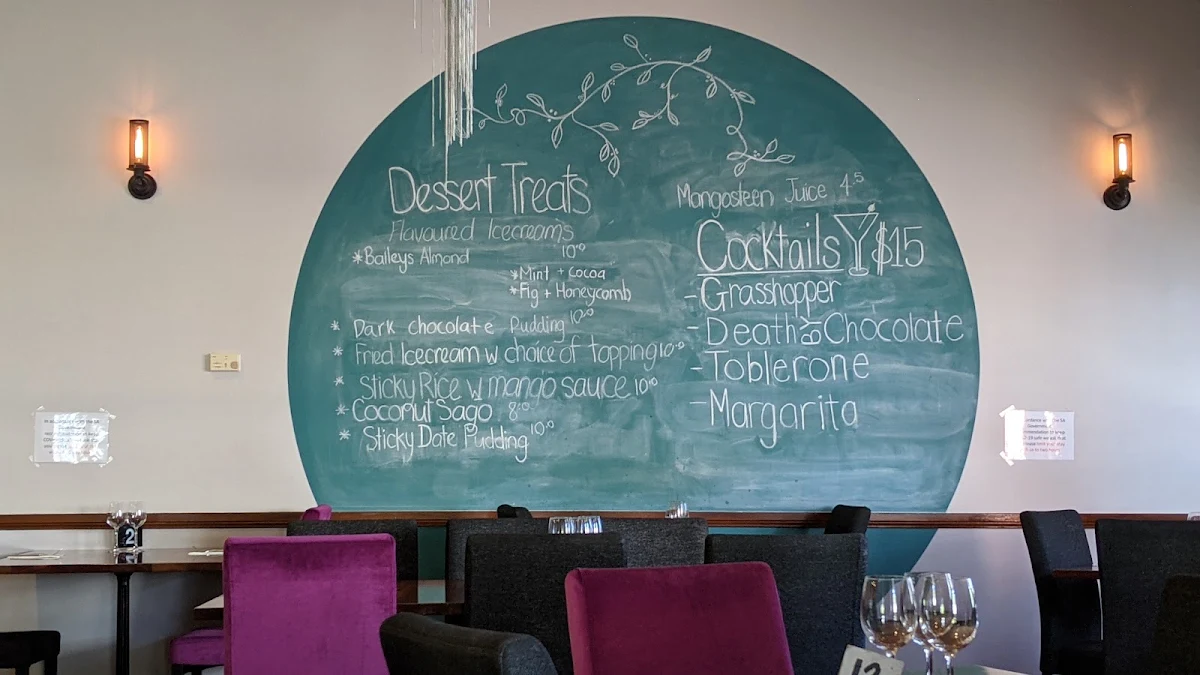 Dessert Treats
Flavoured Icecreams
10.0
*Baileys Almond
*Mint + Cocoa
*Fig + Honeycomb
* Dark chocolate Pudding 10.0
* Fried Icecream w choice of topping 10.0
* Sticky Rice w mango sauce 10.0
* Coconut Sago 8.0
* Sticky Date Pudding 10.0
Mangosteen Juice 4.5
Cocktails $15
- Grasshopper
- Death BY Chocolate
- Toblerone
- Margarita
2
12